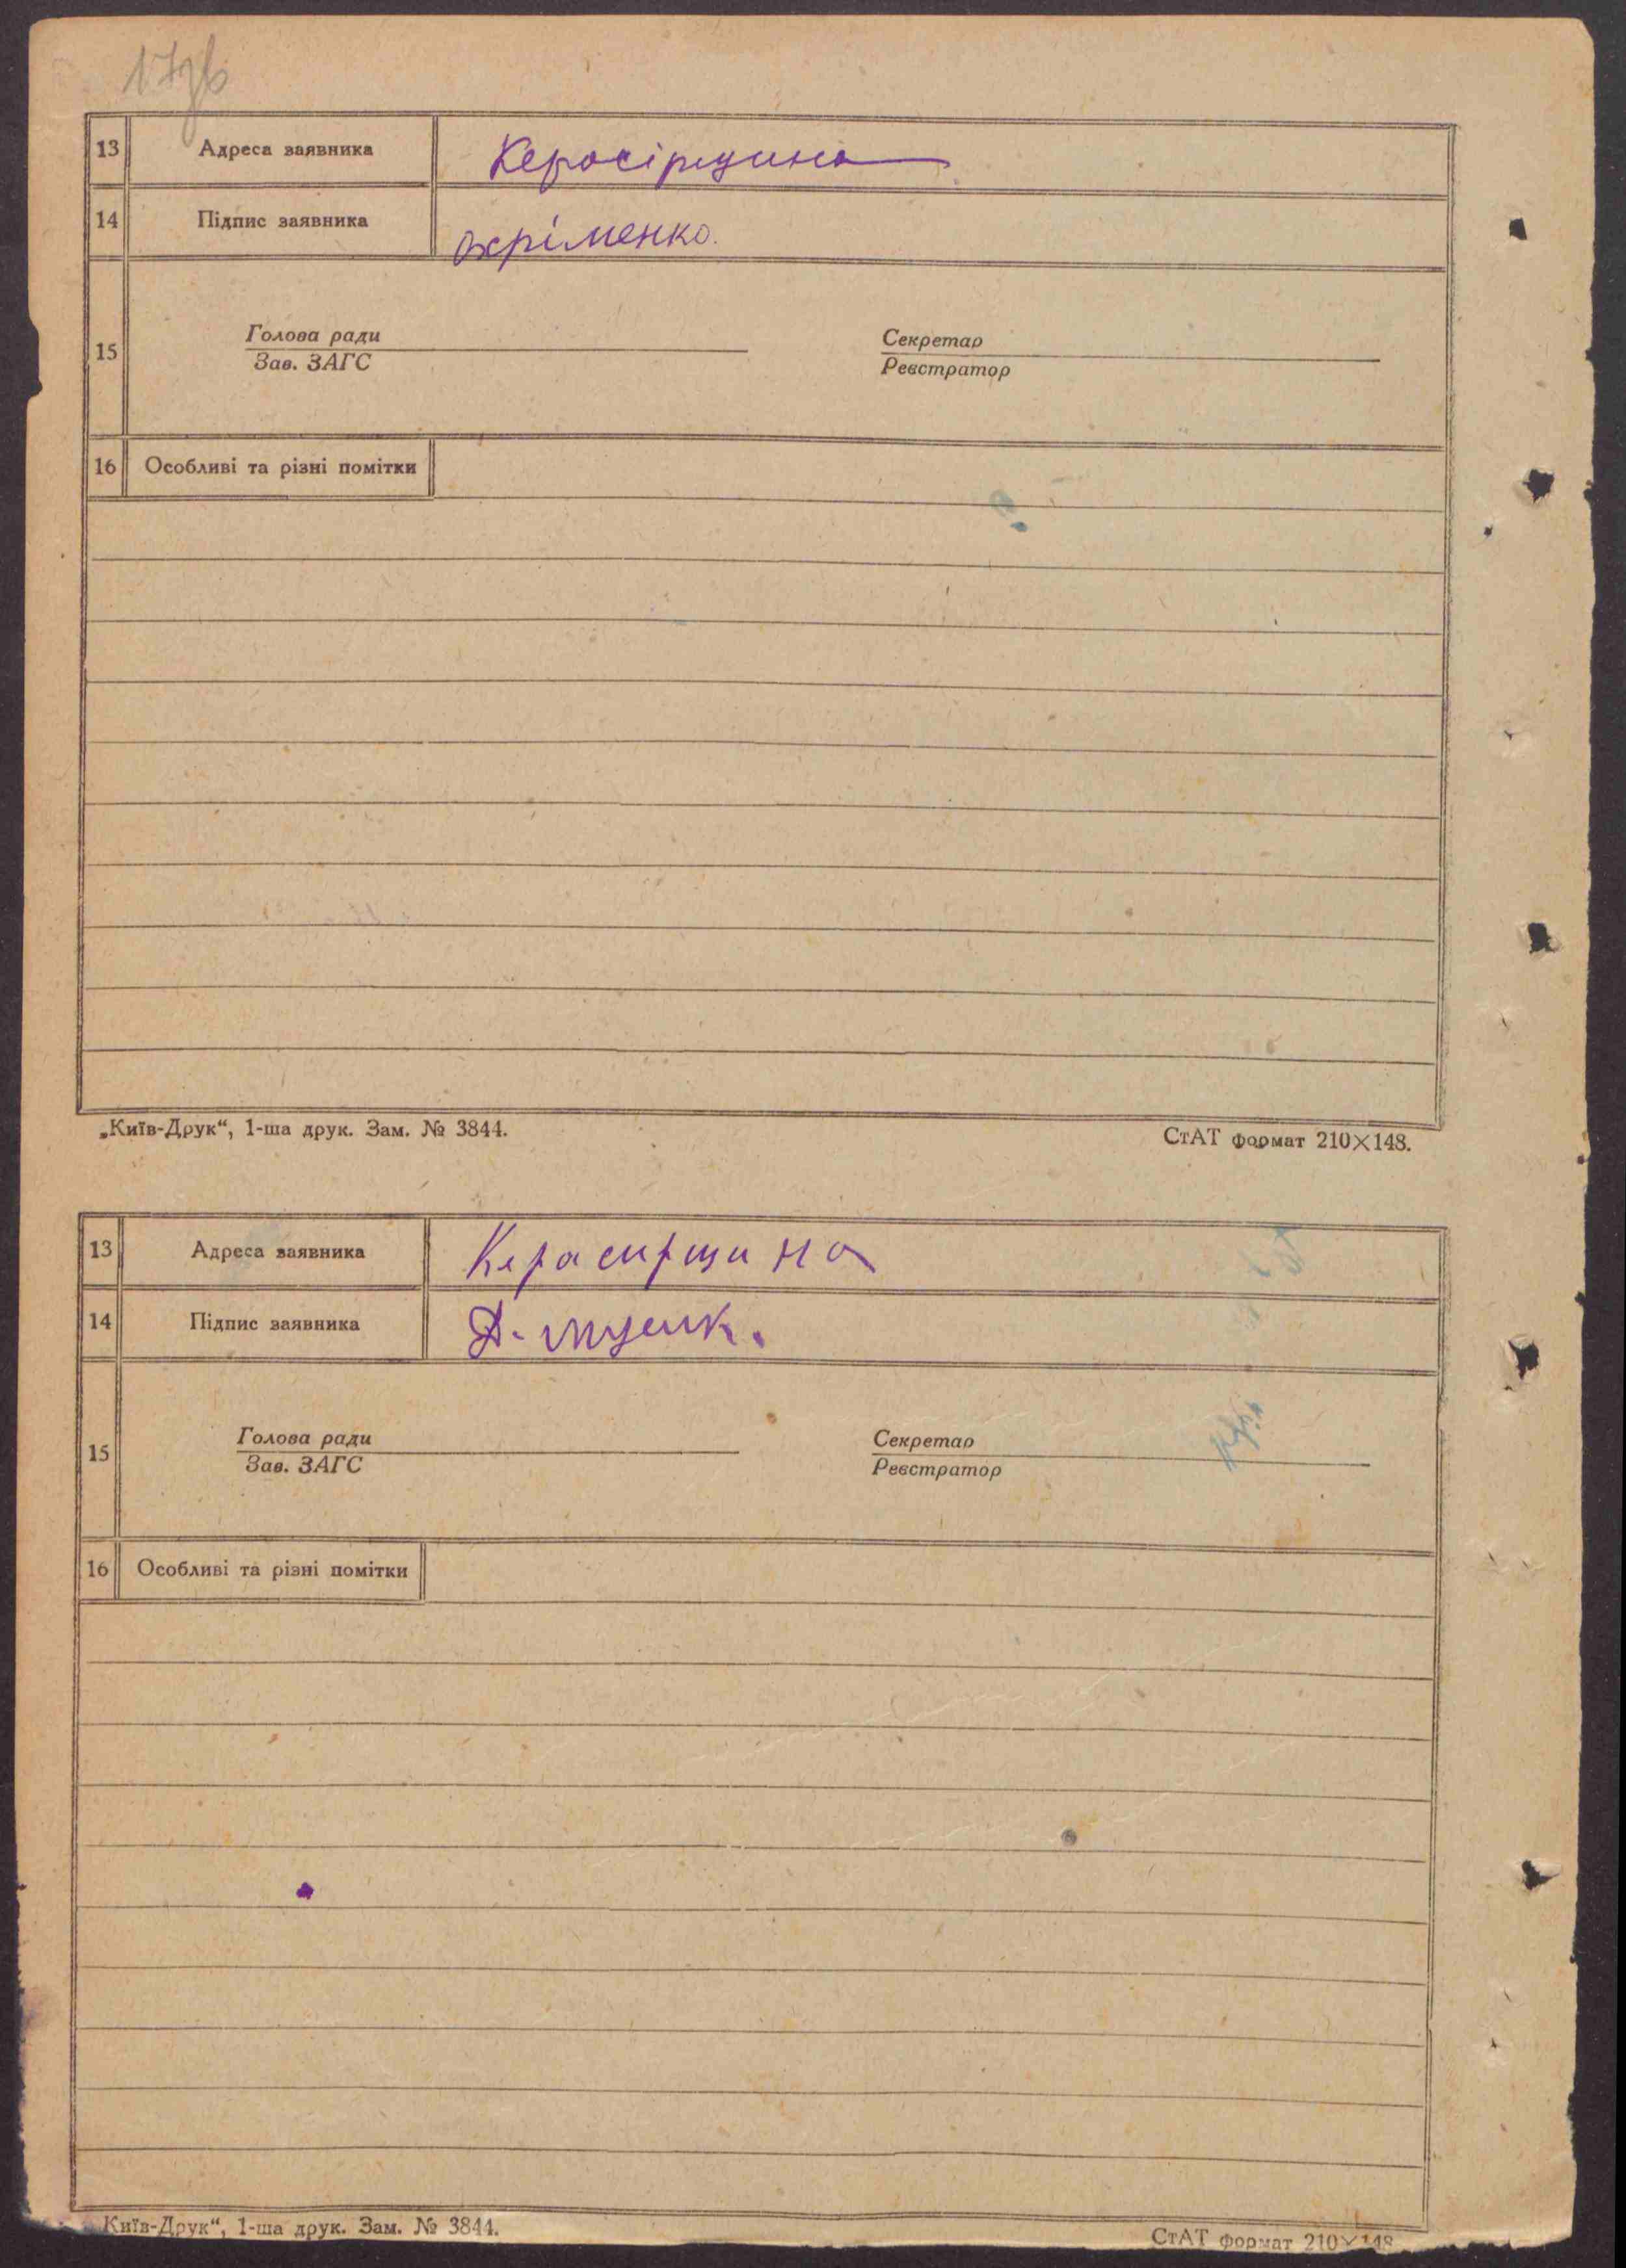 17зв
13 Адреса заявника Керосірщина
14 Підпис заявника охріменко.
15 Голова ради Секретар
Зав. ЗАГС Реєстратор
16 Особливі та різні помітки
„Київ-Друк“, 1-ша друк. Зам. № 3844. СтАТ формат 210×148.
13 Адреса заявника Керасирщина
14 Підпис заявника
15 Голова ради Секретар
Зав. ЗАГС Реєстратор
16 Особливі та різні помітки
Київ-Друк“, 1-ша друк. Зам. № 3844. СтАТ формат 210×148